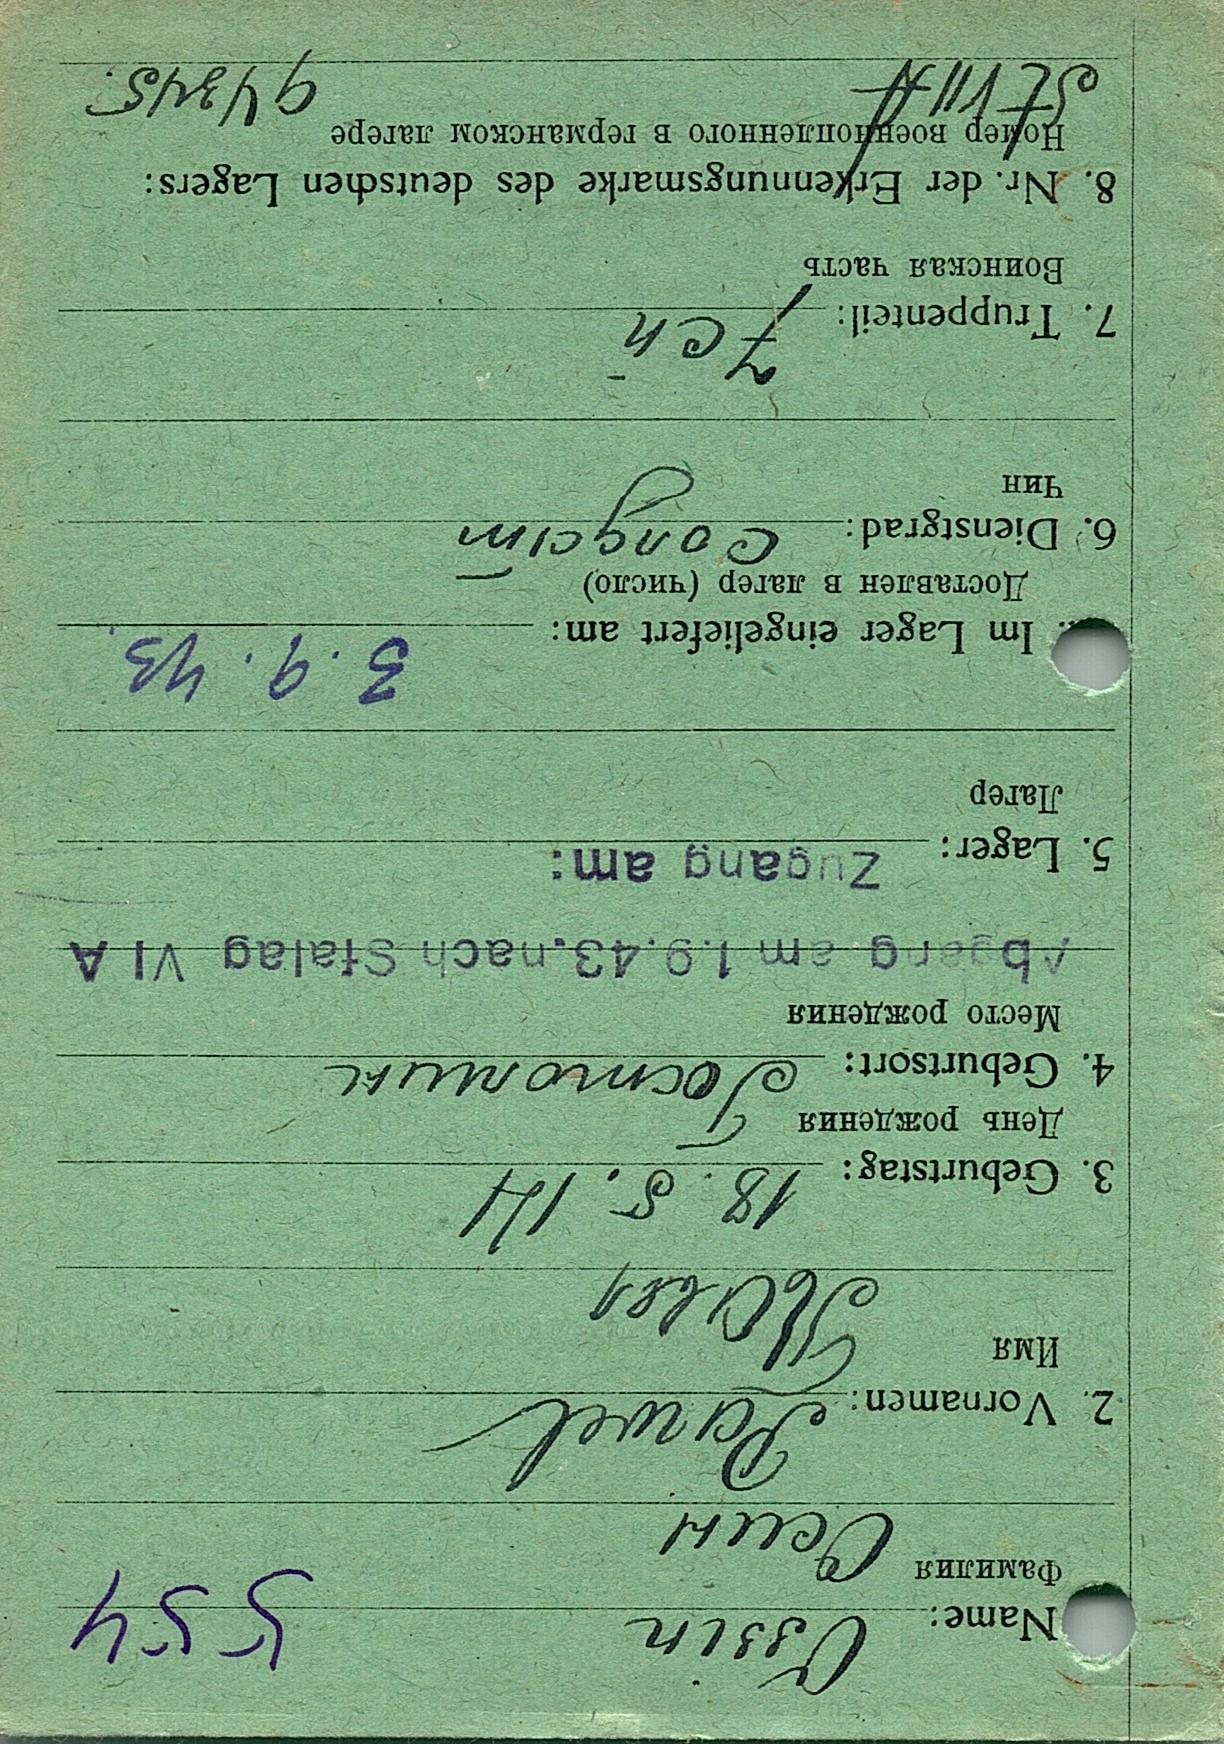 554
Name: Ossin
Фамилия Осин
2. Vornamen: Pawel
Имя Павел
3. Geburtstag: 18. 5. 14
День рождения
4. Geburtsort:
Место рождения
Abgang am 1.9.43.nach Stalag VI A
5. Lager: Zugang am:
Лагер
Im Lager eingeliefert am: 3.9.43.
Доставлен в лагер (число)
6. Dienstgrad: Солдат
Чин
7. Truppenteil:
Воинская часть
8. Nr. der Erkennungsmarke des deutschen Lagers:
Номер военнопленного в германском лагере
St VII A 94345.